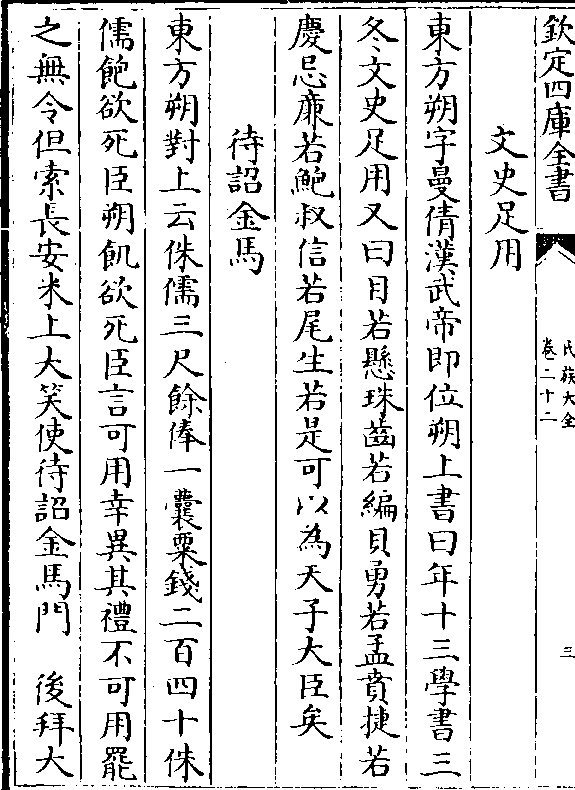 欽定四庫全書
氏族大全
卷二十二
三
文史足用
東方朔字曼倩漢武帝即位朔上書曰年十三學書三
冬文史足用又曰目若懸珠齒若編貝勇若孟賁捷若
慶忌廉若鮑叔信若尾生若是可以為天子大臣矣
待詔金馬
東方朔對上云侏儒三尺餘俸一囊粟錢二百四十侏
儒飽欲死臣朔飢欲死臣言可用幸異其禮不可用罷
之無令但索長安米上大笑使待詔金馬門　後拜大